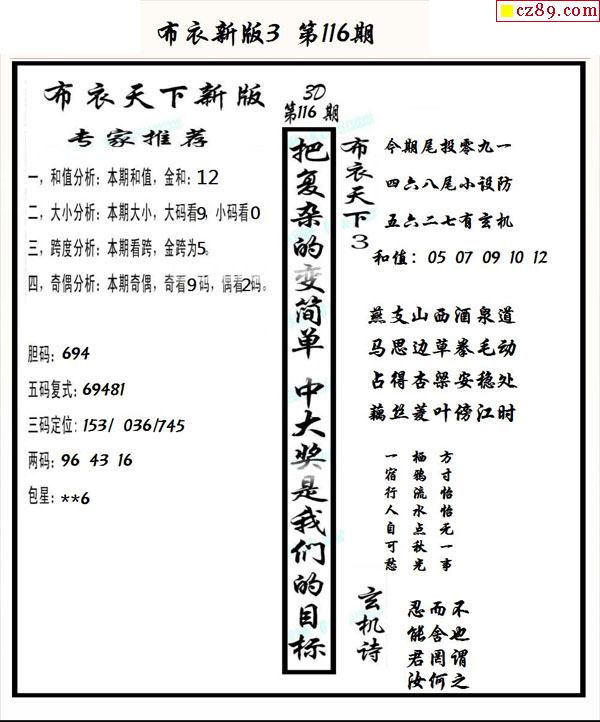 cz89.com
布衣新版3 第116期
布衣天下新版
专家推荐
一，和值分析：本期和值，金和：12
二，大小分析：本期大小，大码看9，小码看0
三，跨度分析：本期看跨，金跨为5。
四，奇偶分析：本期奇偶，奇看9码，偶看2码。
胆码：694
五码复式：69481
三码定位：153/ 036/745
两码：96 43 16
包星：**6
3D
第116期
把复杂的变简单 中大奖是我们的目标
布衣天下3
今期尾投零九一
四六八尾小设防
五六二七有玄机
和值：05 07 09 10 12
燕支山西酒泉道
马思边草拳毛动
占得杏梁安稳处
藕丝菱叶傍江时
方寸怡怡无一事
栖鸦流水点秋光
一宿行人自可愁
玄机诗
忍而不
能舍也
君罔谓
汝何之